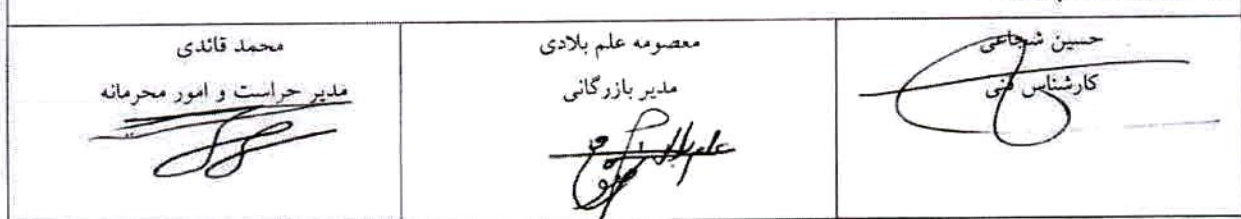 حسین شجاعی
کارشناس فنی
معصومه علم بلادی
مدیر بازرگانی
محمد قائدی
مدیر حراست و امور محرمانه